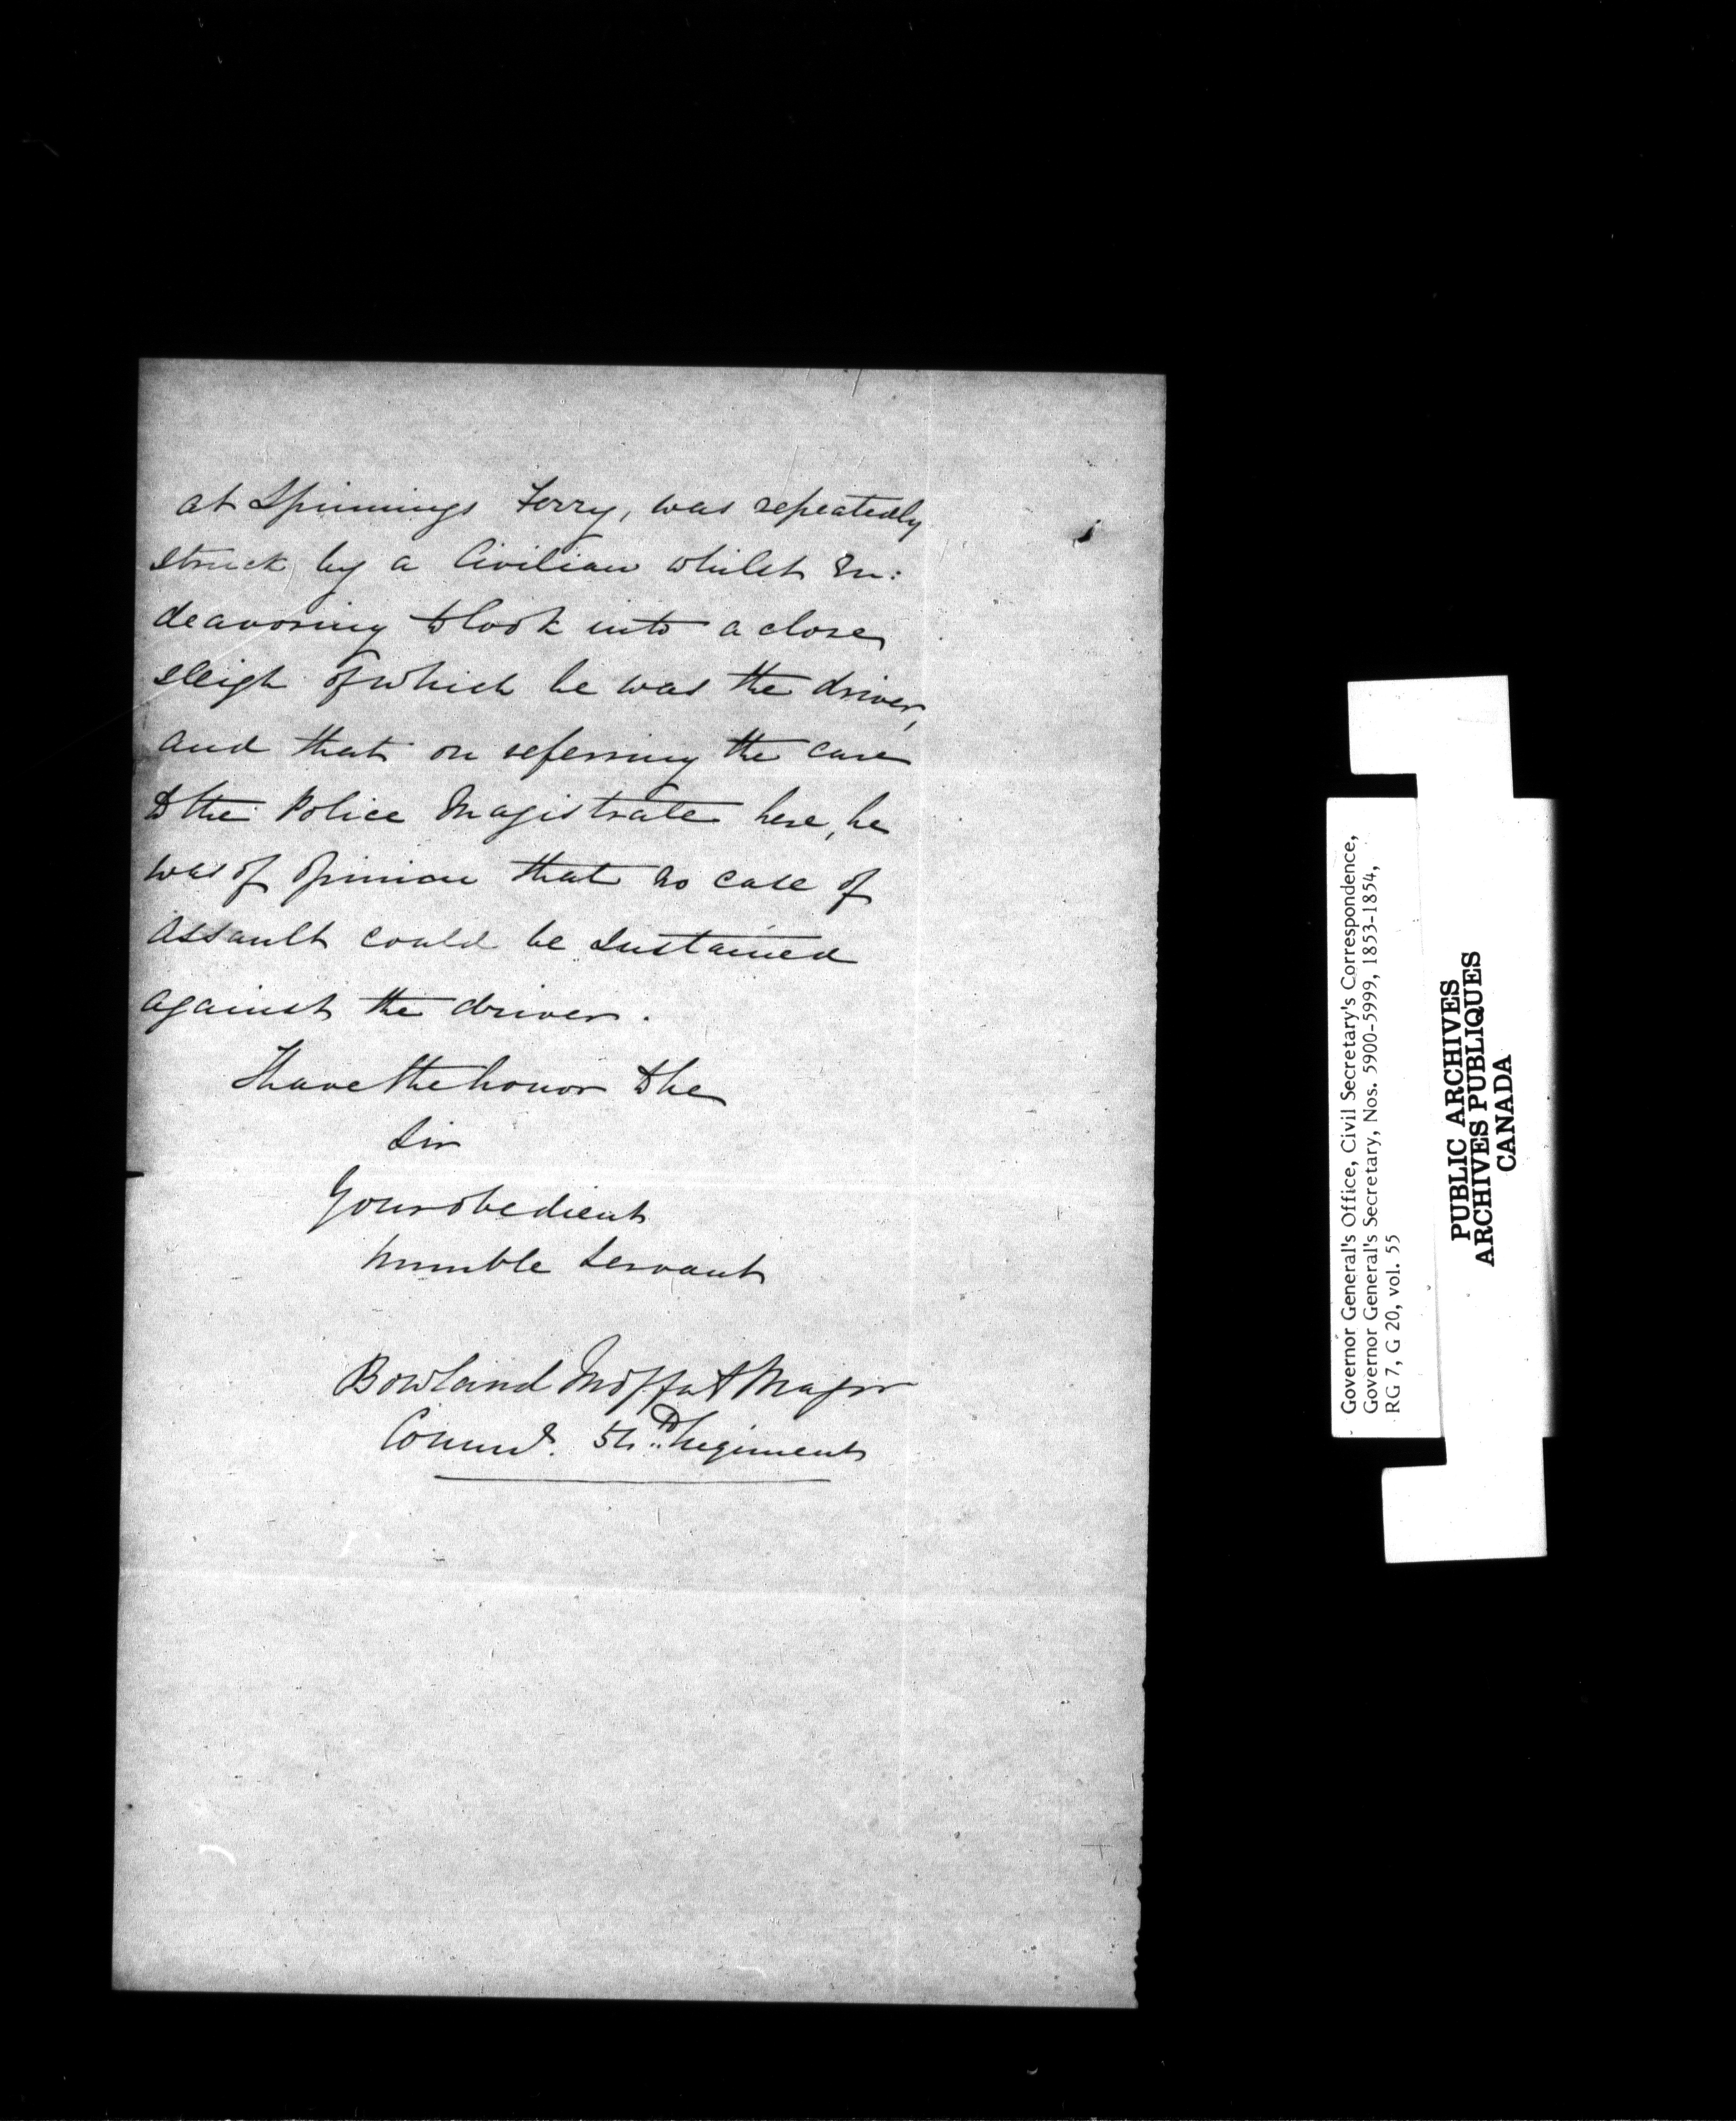 at Spinnings Ferry, was repeatedly
struck by a Civilian whilst En:
deavoring to look into a close
sleigh of which he was the driver,
and that on referring the case
to the Police Magistrate here, he
was of opinion that no case of
assault could be sustained
against the driver.
I have the honor to be
Sir
Your obedient
humble Servant
Bowland Moffat Major
Commd. 54th Regiment
Governor General's Office, Civil Secretary's Correspondence,
Governor General's Secretary, Nos. 5900-5999, 1853-1854,
RG 7, G 20, vol. 55
PUBLIC ARCHIVES
ARCHIVES PUBLIQUES
CANADA